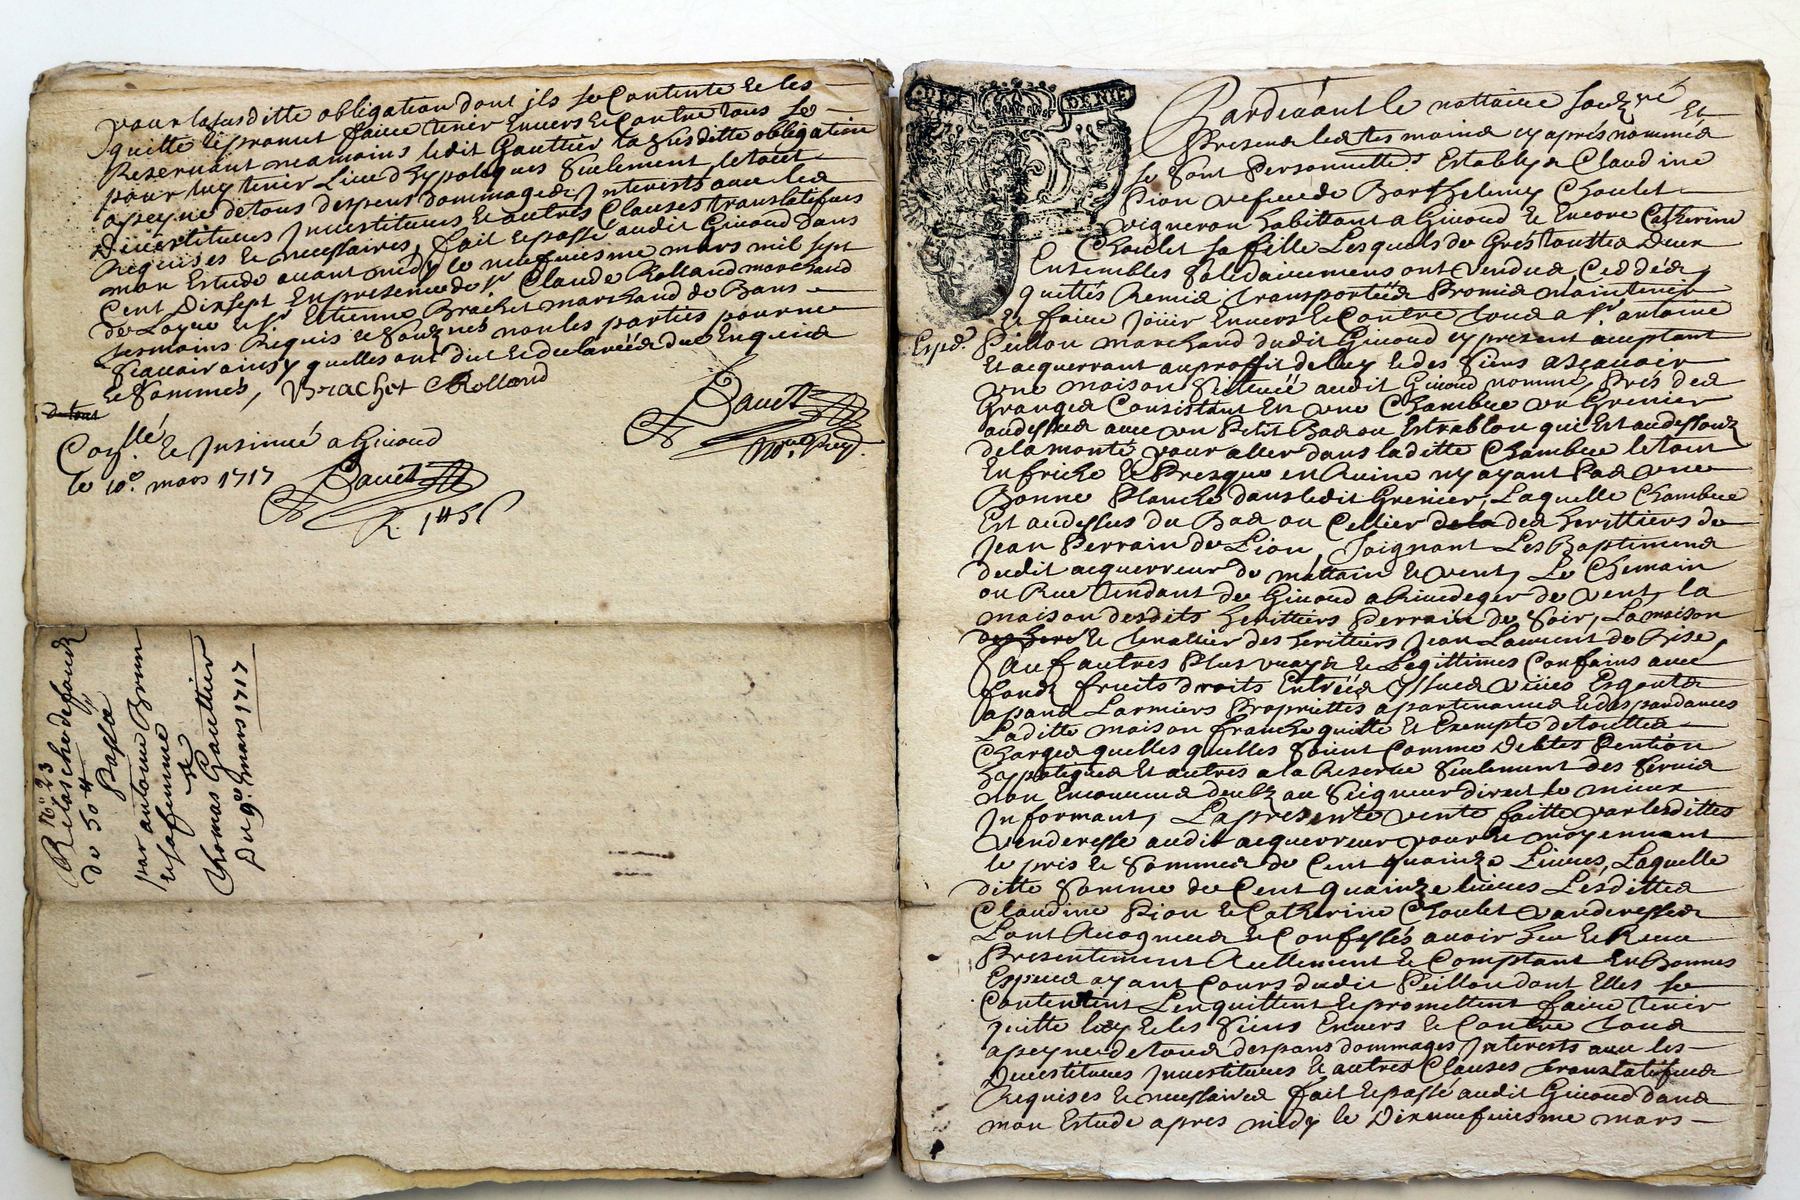 pour la susditte obligation dont jls se Contente & les
quitte & promet faire tenir Envers & Contre tous se
Reservant neamoins ledit Gauttier la susditte obligation
pour luy tenir Lieu d'hypoteques seulement le tout
apeyne de tous despens dommages Jnterests avec les
Divestitures Jnvestitures & autres Clauses translatifves
Requises & necessaires, fait & passé audit Givord dans
mon Estude avant midy le neufviesme mars mil sept
Cent Dixsept En presence de sr Claude Rolland marchand
de & sr Estienne Brachet marchand de
Requis & soubznés non les parties pour ne
scavoir ainsy quelles ont dit & declarées de ce Enquises
& sommés, Brachet Rolland
de tous
Con.llé & Jnsinué a Givord
le 10e. mars 1717
No. 23
Relasche de fondz
de 50 ₶
Passé
par antoine Brun
& sa femme
a
Thomas Gauttier
Du 9e. mars 1717
DE DENIE
Pardevant le nottaire soubz.né Et
Presens les tesmoins cy aprés nommés
se sont Personnelle.t Establyes Claudine
Pion vefve de Barthelemy Choulet
vigneron habittant a Givord & Encore Catherine
Choulet sa fille Lesquels de Gres touttes deux
Ensembles solidairemens ont vendus, Ceddées,
quittés Remis transportées Promis maintenir
& faire joüir Envers & Contre tous a sr. antoine
Expé.
Peillon marchand dudit Givord cy present acceptant
Et acquerrant au proffit de luy & des siens ascavoir
une maison scituée audit Givord nommé, Prés des
Granges Consistant En une Chambre un Grenier
audessus avec un Petit Bas ou Estrablou qui Est audessoubz
de la monté pour aller dans laditte Chambre le tout
En friche & Presque en Ruine ny ayant Pas une
Bonne Planche dans ledit Grenier, Laquelle Chambre
Est audessus du Bas ou Cellier de la des herittiers de
Jean Perrain de Lion, Joignant Les Bastimens
dudit acquerreur de mattain & vent, Le Chemain
ou Rue tendant de Givord a Rivedeger de vent, la
maison desdits herittiers Perrain de soir, La maison
& tenallier des herittiers Jean Laurent de Bise,
sauf autres Plus vrays & Legittimes Confains avec
fondz fruits droits Entrées yssues Esgouts
apans Larmiers Proprietés apartenances & despandances
Laditte maison franche quitte & Exempte de touttes
Charges quelles quelles soient Comme debtes Pention
hypoteques Et autres a la Reserve seulement des servis
non Encourus deubz au seigneur direct le mieux
Jnformant, La presente vente faitte par lesdittes
venderesse audit acquerreur pour & moyennant
le pris & sommes de Cent quainze Livres, Laquelle
ditte somme de Cent quainze livres Lesdittes
Claudine Pion & Catherine Choulet vanderesses
Lont Recogneu & Confessés avoir heu & Receu
Presentement Reellement & Comptant En Bonnes
Especes ayant Cours dudit Peillon dont Elles se
Contentent Len quittent & promettent faire tenir
quitte luy & les siens Envers & Contre tous
apeyne de tous despans dommages Jnterests avec les
Devestitures jnvestitures & autres Clauses translatifves
Requises & necessaires fait & passé audit Givord dans
mon Estude apres midy le Dixneufviesme mars